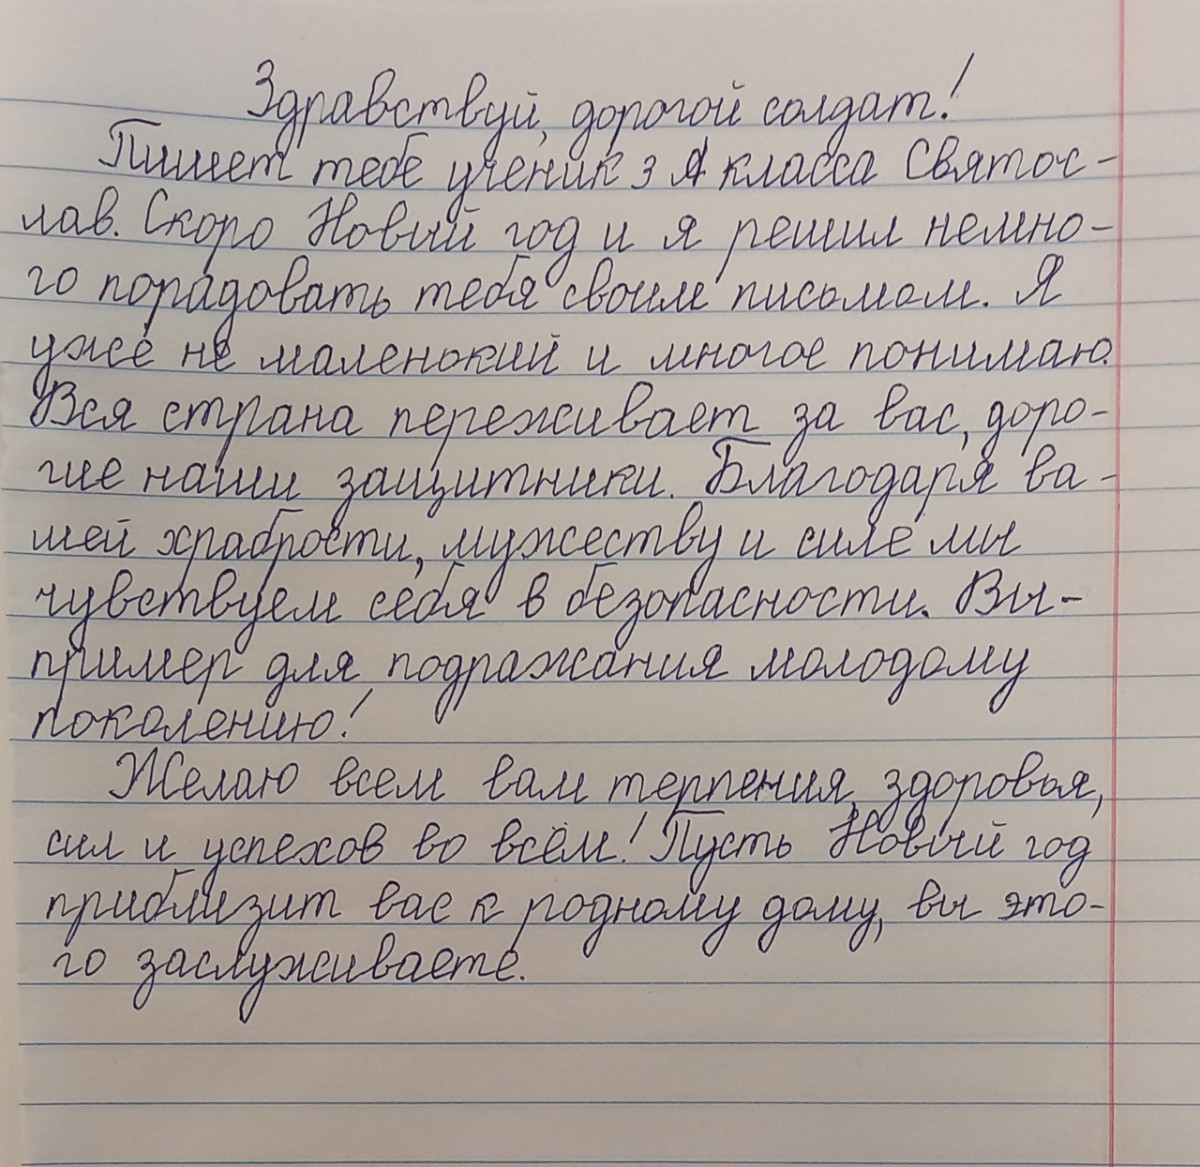 Здравствуй, дорогой солдат!
Пишет тебе ученик 3 А класса Святос-
лав. Скоро Новый год и я решил немно-
го порадовать тебя своим письмом. Я
уже не маленький и многое понимаю.
Вся страна переживает за вас, доро-
гие наши защитники. Благодаря ва-
шей храбрости, мужеству и силе мы
чувствуем себя в безопасности. Вы-
пример для подражания молодому
поколению!
Желаю всем вам терпения, здоровья,
сил и успехов во всём! Пусть Новый год
приблизит вас к родному дому, вы это-
го заслуживаете.